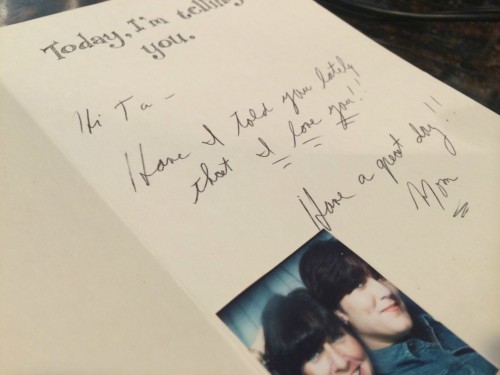 Today, I'm telling
you.
Hi Ta -
Have I told you lately
that I love you!!
Have a great day!!
Mom